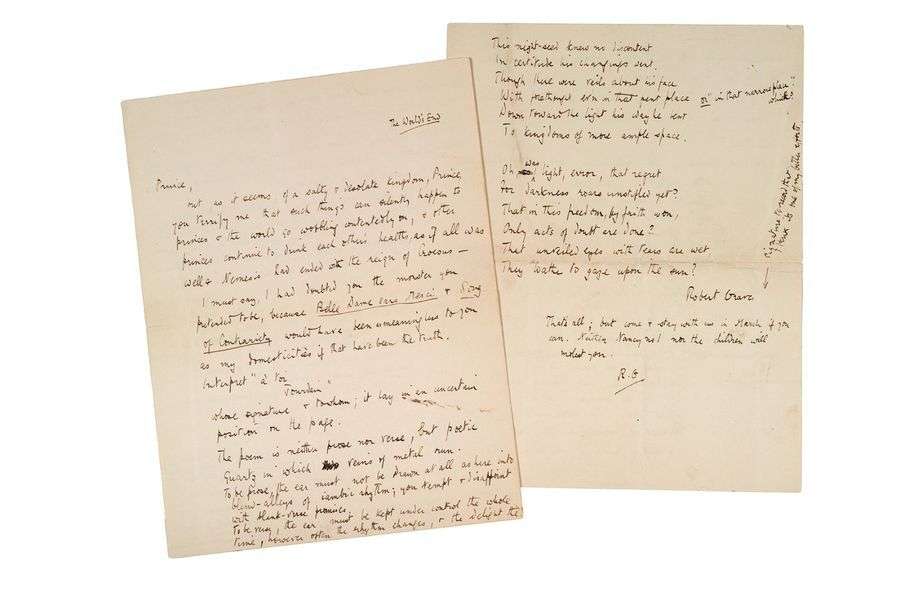 The World's End
Prince,
out as it seems of a salty & desolate kingdom, Prince,
you terrify me that such things can silently happen to
princes & the world go wobbling contentedly on, & other
princes continue to drink each others healths, as if all was
well & Nemesis had ended with the reign of Croesus —
I must say, I had doubted you the monster you
pretended to be, because Belle Dame sans Merci & Song
of Contrariety would have been as meaningless to you
as my domesticities if that have been the truth.
Interpret "à toi
whose signature & to whom; it lay in an uncertain
position on the page.
The poem is neither prose nor verse, but poetic
Quartz in which veins of metal run.
To be prose, the ear must not be drawn at all as here into
blind-alleys of iambic rhythm; you tempt & disappoint
with blank-verse promises,
To be verse, the ear must be kept under control the whole
time, however often the rhythm changes, & the delight the
This night-seed knew no discontent
In certitude his changings went.
Though there were veils about his face
With forethought even in that pent place or "in that narrow place"
which?
Down toward the light his way he bent
To kingdoms of more ample space.
Oh was light, error, that regret
For darkness roars unstifled yet?
That in this freedom, by faith won,
Only acts of doubt are done?
That unveiled eyes with tears are wet,
They loathe to gaze upon the sun?
Robert Graves
Signature to record that
this is one of my better efforts.
That's all; but come & stay with us in March if you
can. Neither Nancy nor I nor the children will
molest you.
R.G